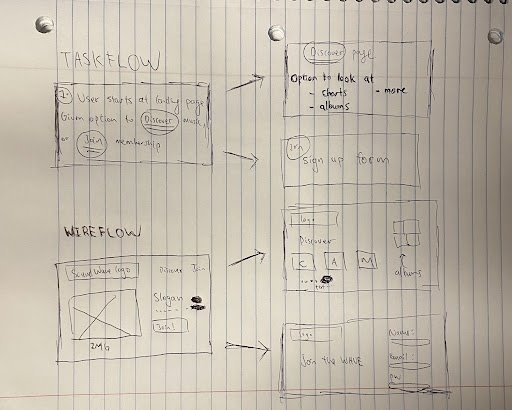 TASKFLOW
1. User starts at landing page
Given option to Discover music,
or Join membership
Discover page
Option to look at
- charts - more
- albums
Join
sign up form
WIREFLOW
SoundWave logo Discover Join
Slogan
Join!
IMG
logo
Discover
C A M
albums
logo
Join the WAVE
Name:
Email: